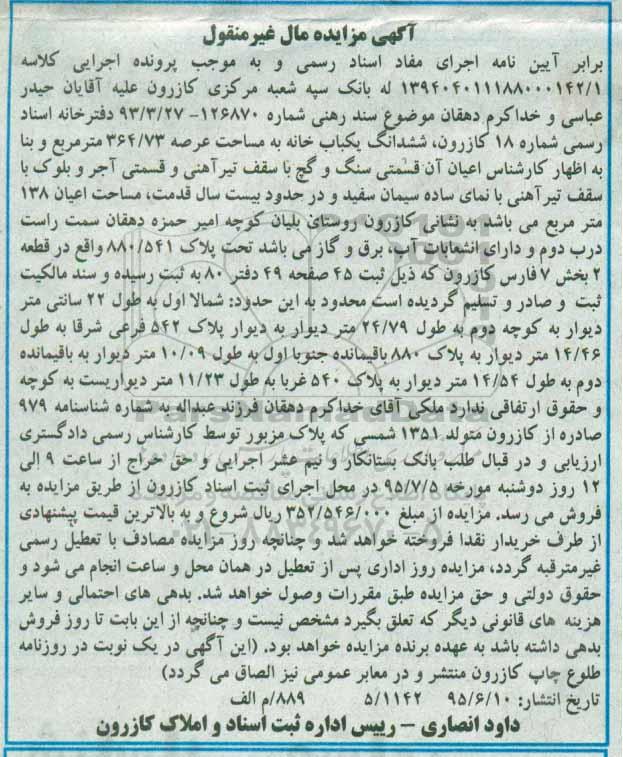 آگهی مزایده مال غیرمنقول
برابر آیین نامه اجرای مفاد اسناد رسمی و به موجب پرونده اجرایی کلاسه
۱۳۹۴۰۴۰۱۱۱۸۸۰۰۰۱۴۲/۱ له بانک سپه شعبه مرکزی کازرون علیه آقایان حیدر
عباسی و خداکرم دهقان موضوع سند رهنی شماره ۱۲۶۸۷۰- ۹۳/۳/۲۷ دفترخانه اسناد
رسمی شماره ۱۸ کازرون، ششدانگ یکباب خانه به مساحت عرصه ۳۶۴/۷۳ مترمربع و بنا
به اظهار کارشناس اعیان آن قسمتی سنگ و گچ با سقف تیرآهنی و قسمتی آجر و بلوک با
سقف تیرآهنی با نمای ساده سیمان سفید و در حدود بیست سال قدمت، مساحت اعیان ۱۳۸
متر مربع می باشد به نشانی کازرون روستای بلیان کوچه امیر حمزه دهقان سمت راست
درب دوم و دارای انشعابات آب، برق و گاز می باشد تحت پلاک ۸۸۰/۵۴۱ واقع در قطعه
۲ بخش ۷ فارس کازرون که ذیل ثبت ۴۵ صفحه ۴۹ دفتر ۸۰ به ثبت رسیده و سند مالکیت
ثبت و صادر و تسلیم گردیده است محدود به این حدود: شمالا اول به طول ۲۲ سانتی متر
دیوار به کوچه دوم به طول ۲۴/۷۹ متر دیوار به دیوار پلاک ۵۴۲ فرعی شرقا به طول
۱۴/۴۶ متر دیوار به پلاک ۸۸۰ باقیمانده جنوبا اول به طول ۱۰/۰۹ متر دیوار به باقیمانده
دوم به طول ۱۴/۵۴ متر دیوار به پلاک ۵۴۰ غربا به طول ۱۱/۲۳ متر دیواریست به کوچه
و حقوق ارتفاقی ندارد ملکی آقای خداکرم دهقان فرزند عبداله به شماره شناسنامه ۹۷۹
صادره از کازرون متولد ۱۳۵۱ شمسی که پلاک مزبور توسط کارشناس رسمی دادگستری
ارزیابی و در قبال طلب بانک بستانکار و نیم عشر اجرایی و حق حراج از ساعت ۹ الی
۱۲ روز دوشنبه مورخه ۹۵/۷/۵ در محل اجرای ثبت اسناد کازرون از طریق مزایده به
فروش می رسد. مزایده از مبلغ ۳۵۲/۵۴۶/۰۰۰ ریال شروع و به بالاترین قیمت پیشنهادی
از طرف خریدار نقدا فروخته خواهد شد و چنانچه روز مزایده مصادف با تعطیل رسمی
غیرمترقبه گردد، مزایده روز اداری پس از تعطیل در همان محل و ساعت انجام می شود و
حقوق دولتی و حق مزایده طبق مقررات وصول خواهد شد. بدهی های احتمالی و سایر
هزینه های قانونی دیگر که تعلق بگیرد مشخص نیست و چنانچه از این بابت تا روز فروش
بدهی داشته باشد به عهده برنده مزایده خواهد بود. (این آگهی در یک نوبت در روزنامه
طلوع چاپ کازرون منتشر و در معابر عمومی نیز الصاق می گردد)
تاریخ انتشار: ۹۵/۶/۱۰ ۵/۱۱۴۲ ۸۸۹/م الف
داود انصاری – رییس اداره ثبت اسناد و املاک کازرون